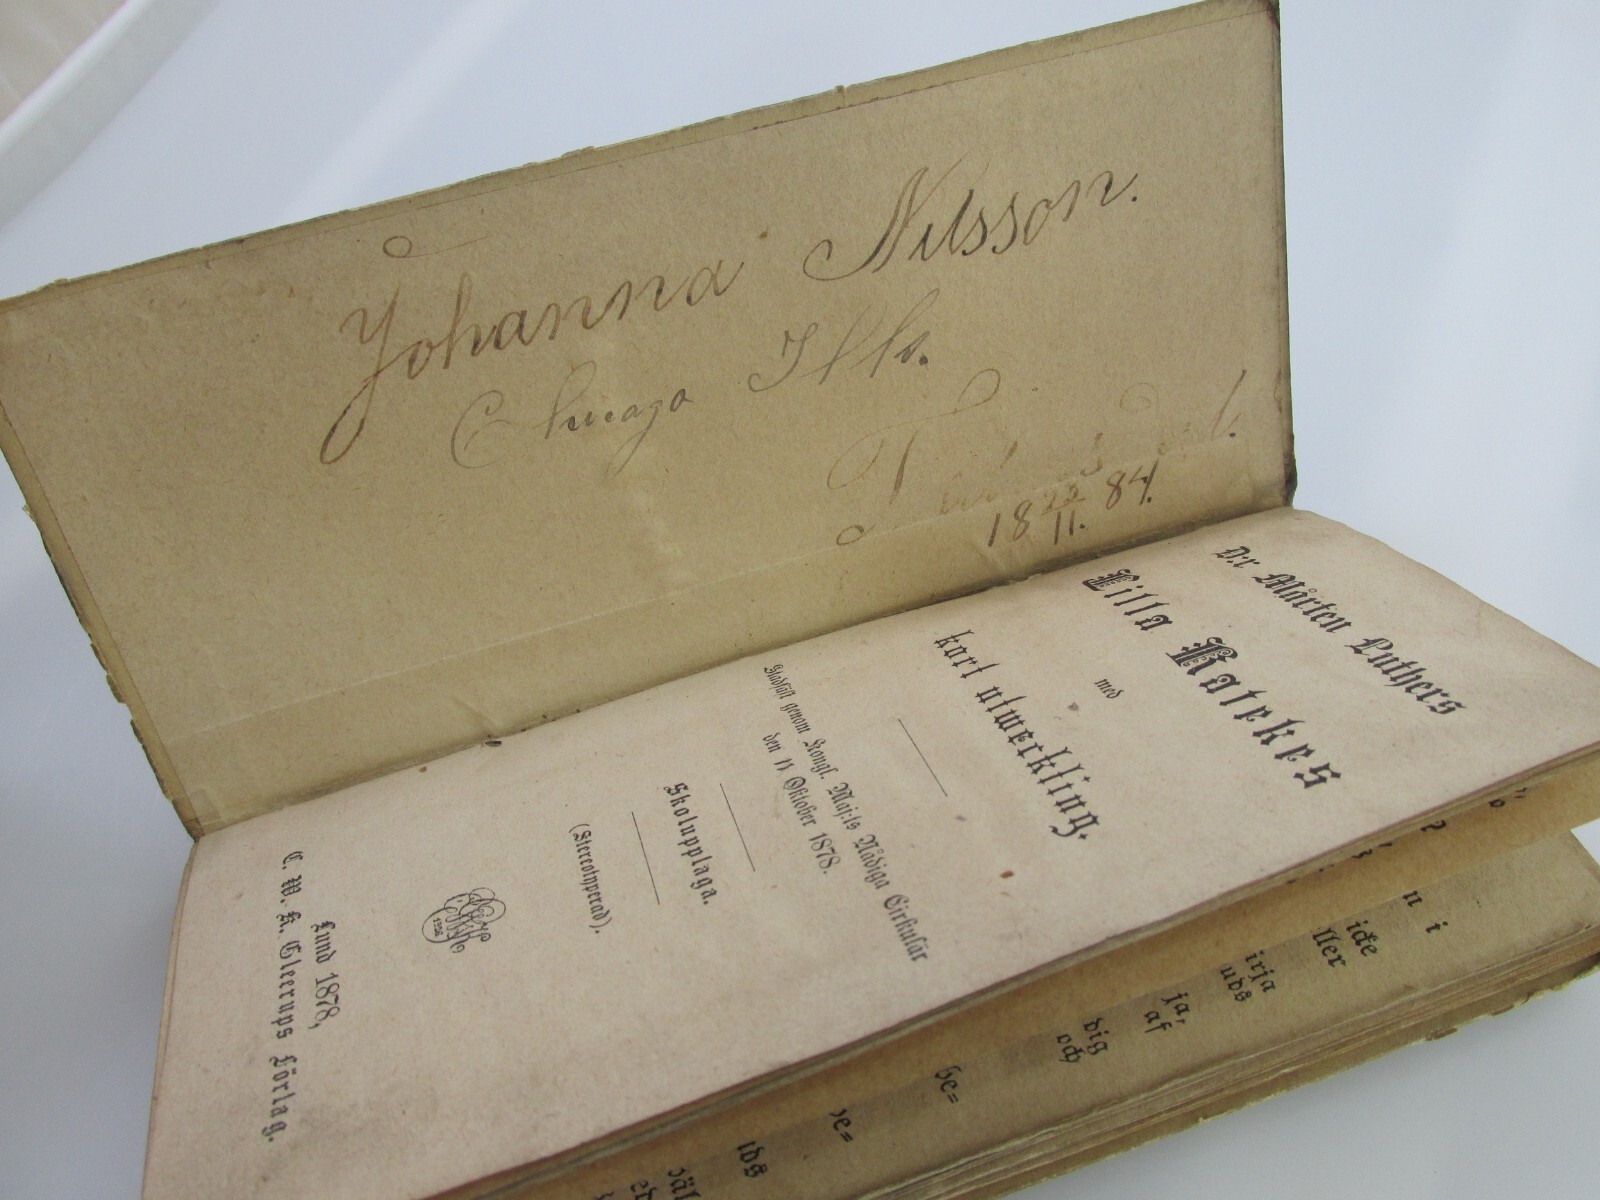 Johanna Nilsson.
Chicago Ills.
18 25/11. 84.
D:r Mårten Luthers
Lilla Katekes
med
kort utweckling.
Stadfäst genom Kongl. Maj:ts Nådiga Cirkulär
den 11 Oktober 1878.
Skolupplaga.
(Stereotyperad).
Lund 1878,
C. W. K. Gleerups Förlag.
n i
icke
ller
irja
uds
ja,
af
dig
och
be=